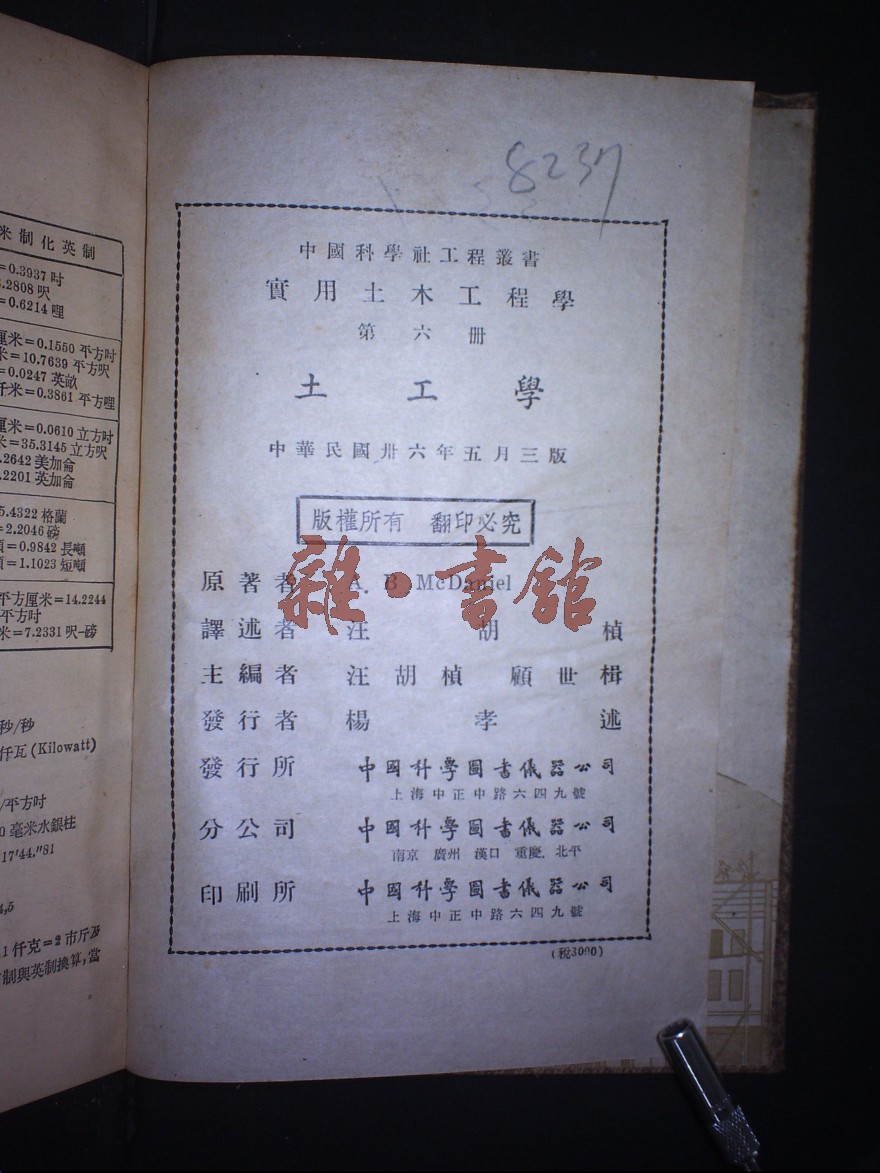 米制化英制
=0.3937 吋
.2808 呎
=0.6214 哩
厘米=0.1550 平方吋
米=10.7639 平方呎
=0.0247 英畝
仟米=0.3861 平方哩
厘米=0.0610 立方吋
米=35.3145 立方呎
.2642 美加侖
.2201 英加侖
5.4322 格蘭
=2.2046 磅
=0.9842 長噸
=1.1023 短噸
平方厘米=14.2244
平方吋
米=7.2331 呎-磅
秒/秒
仟瓦 (Kilowatt)
/平方吋
0 毫米水銀柱
17'44."81
4,5
1 仟克=2 市斤及
制與英制換算,當
8237
中國科學社工程叢書
實用土木工程學
第六册
土工學
中華民國卅六年五月三版
版權所有 翻印必究
原著者 A. B. McDaniel
譯述者 汪胡楨
主編者 汪胡楨 顧世楫
發行者 楊孝述
發行所 中國科學圖書儀器公司
上海中正中路六四九號
分公司 中國科學圖書儀器公司
南京 廣州 漢口 重慶 北平
印刷所 中國科學圖書儀器公司
上海中正中路六四九號
(税3000)
雜·書館